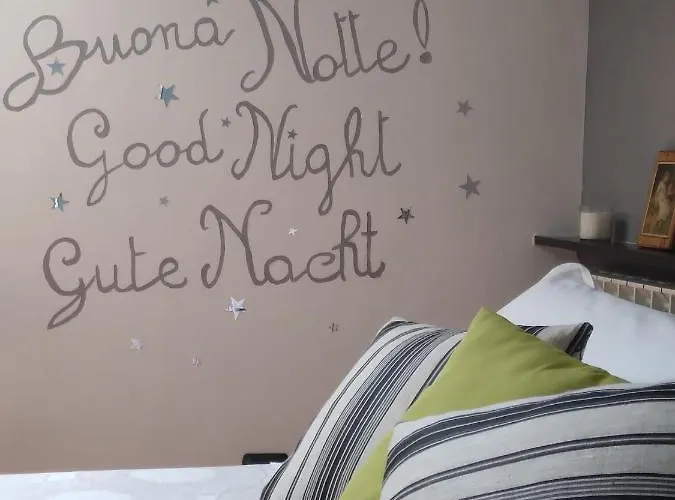 Buonâ Notte!
Good Night
Gute Nacht